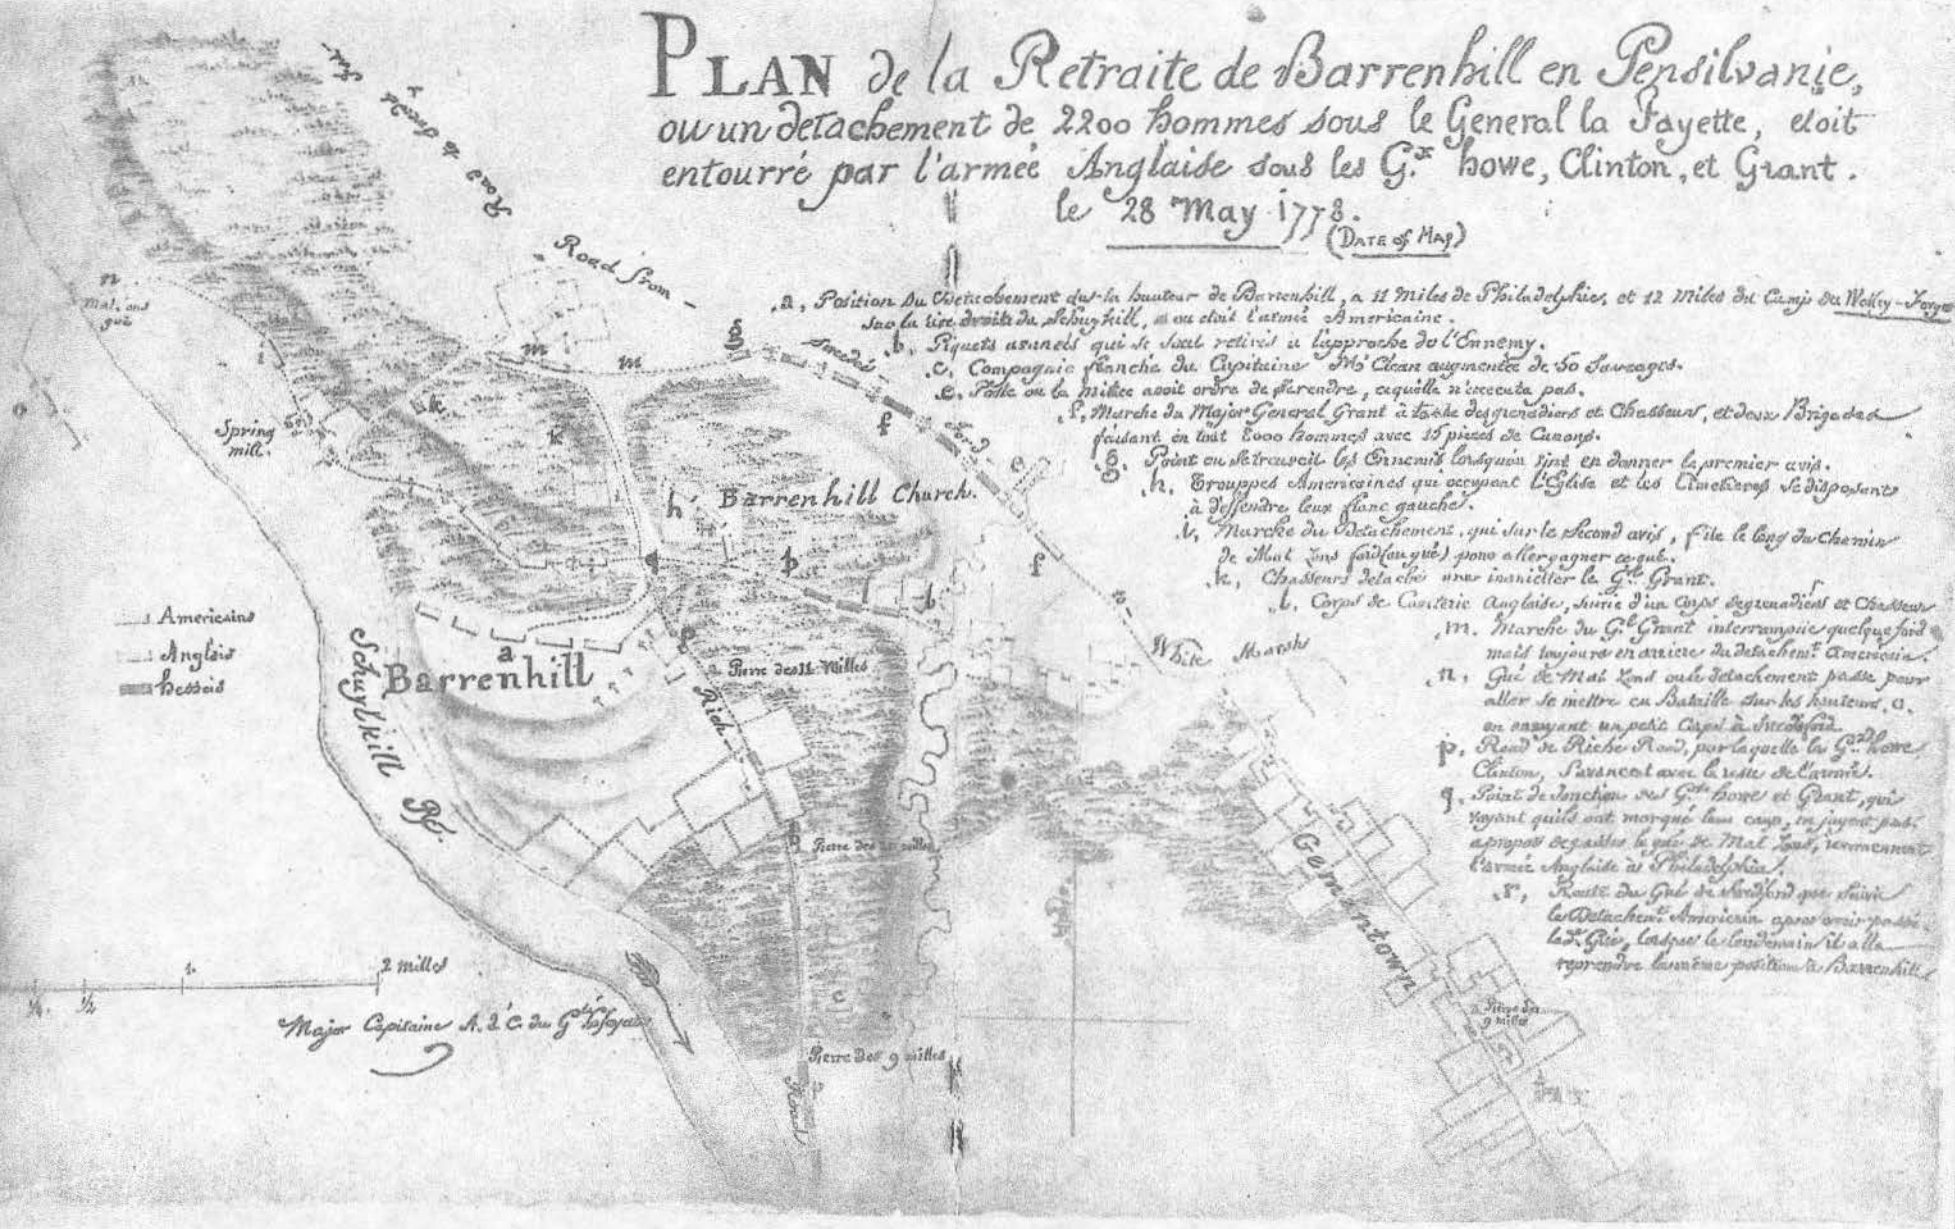 PLAN de la Retraite de Barrenhill en Pensilvanie,
ou un detachement de 2200 hommes sous le General la Fayette, etoit
entourré par l'armeé Anglaise sous les G.x howe, Clinton, et Grant.
le 28 May 1778.
(DATE of MAP)
Road from
a, Position du Detachement sur la hauteur de Barrenhill, a 11 Miles de Philadelphie, et 12 Miles du Camp du Valley-Forge
sur la rive droite du Schuylkill, ou etoit l'armeé Americaine.
b, Piquets avancés qui se sont retirés a l'approche de l'Ennemy.
c, Compagnie franche du Capitaine Mc Clean augmentée de 50 Sauvages.
e, Poste ou la milice avoit ordre de se rendre, cequ'elle n'executa pas.
f, Marche du Major General Grant à la tete des grenadiers et Chasseurs, et deux Brigades
faisant en tout 8000 hommes avec 15 pieces de Canons.
g, Point ou se trouvoit les Ennemis lorsqu'on vint en donner le premier avis.
h, Trouppes Americaines qui occupent l'Eglise et les Cimetieres se disposants
à deffendre leur flanc gauche.
i, Marche du Detachement, qui sur le second avis, file le long du Chemin
de Mat Lons ford (ou gué) pour aller gagner ce gué.
k, Chasseurs detachés pour inquietter le G.l Grant.
l, Corps de Cavalerie Anglaise, suivie d'un Corps de grenadiers et Chasseurs
m. Marche du G.l Grant interrompue quelque fois
mais toujours en arriere du detachem.t Americain.
n, Gué de Mat Lons ou le detachement passe pour
aller se mettre en Bataille sur les hauteurs, o,
en envoyant un petit Corps à Swedsford.
p, Road de Riche Road, par laquelle les G.x howe
Clinton, s'avancent avec le reste de l'armée.
q, Point de Jonction des G.x howe et Grant, qui
voyant qu'ils ont manqué leur coup, ne jugent pas
apropos de passer le gué de Mat Lons, ramennent
l'armée Anglaise à Philadelphie.
r, Route du Gué de Swedford que suivit
le Detachem.t Americain apres avoir passé
le d.t Gué, lorsque le lendemain il alla
reprendre la même position à Barrenhill
n
m
m
g
Swedes
f
ford
e
f
to
White Marsh
i
k
k
Spring
mill.
h
Barrenhill Church.
q
p
b
l
Americains
Anglais
hessois
a
Barrenhill
Pierre des 11 Milles
Rich
Schuylkill Rr.
Germantown
c
Pierre des 9 milles
Road
Pierre des
9 milles
1/4. 1/2 1. 2 milles
Major Capitaine A. d. C. du G.l Lafayette